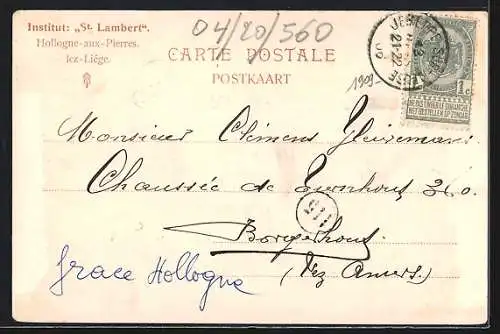 Institut: „St. Lambert".
Hollogne-aux-Pierres.
lez-Liége.
04/20/560
CARTE POSTALE
POSTKAART
1909-
21-22
09
1c
NE PAS LIVRER LE DIMANCHE
NIET BESTELLEN OP ZONDAG
Monsieur Clémens
Chaussée de Turnhout 360.
115
Borgerhout
(lez Anvers.)
Grace Hollogne